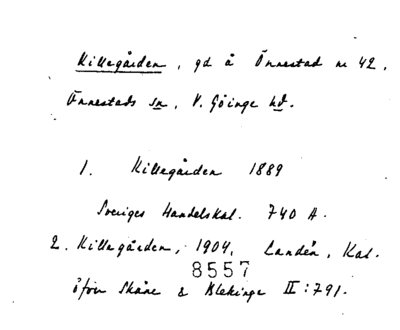 Killegården, gd å Önnestad nr 42,
Önnestads sn, V. Göinge hd.
1. Killegården 1889
Sveriges Handelskal. 740 A.
2. Killegården, 1904, Landén, Kat.
8557
öfver Skåne & Blekinge II:791.